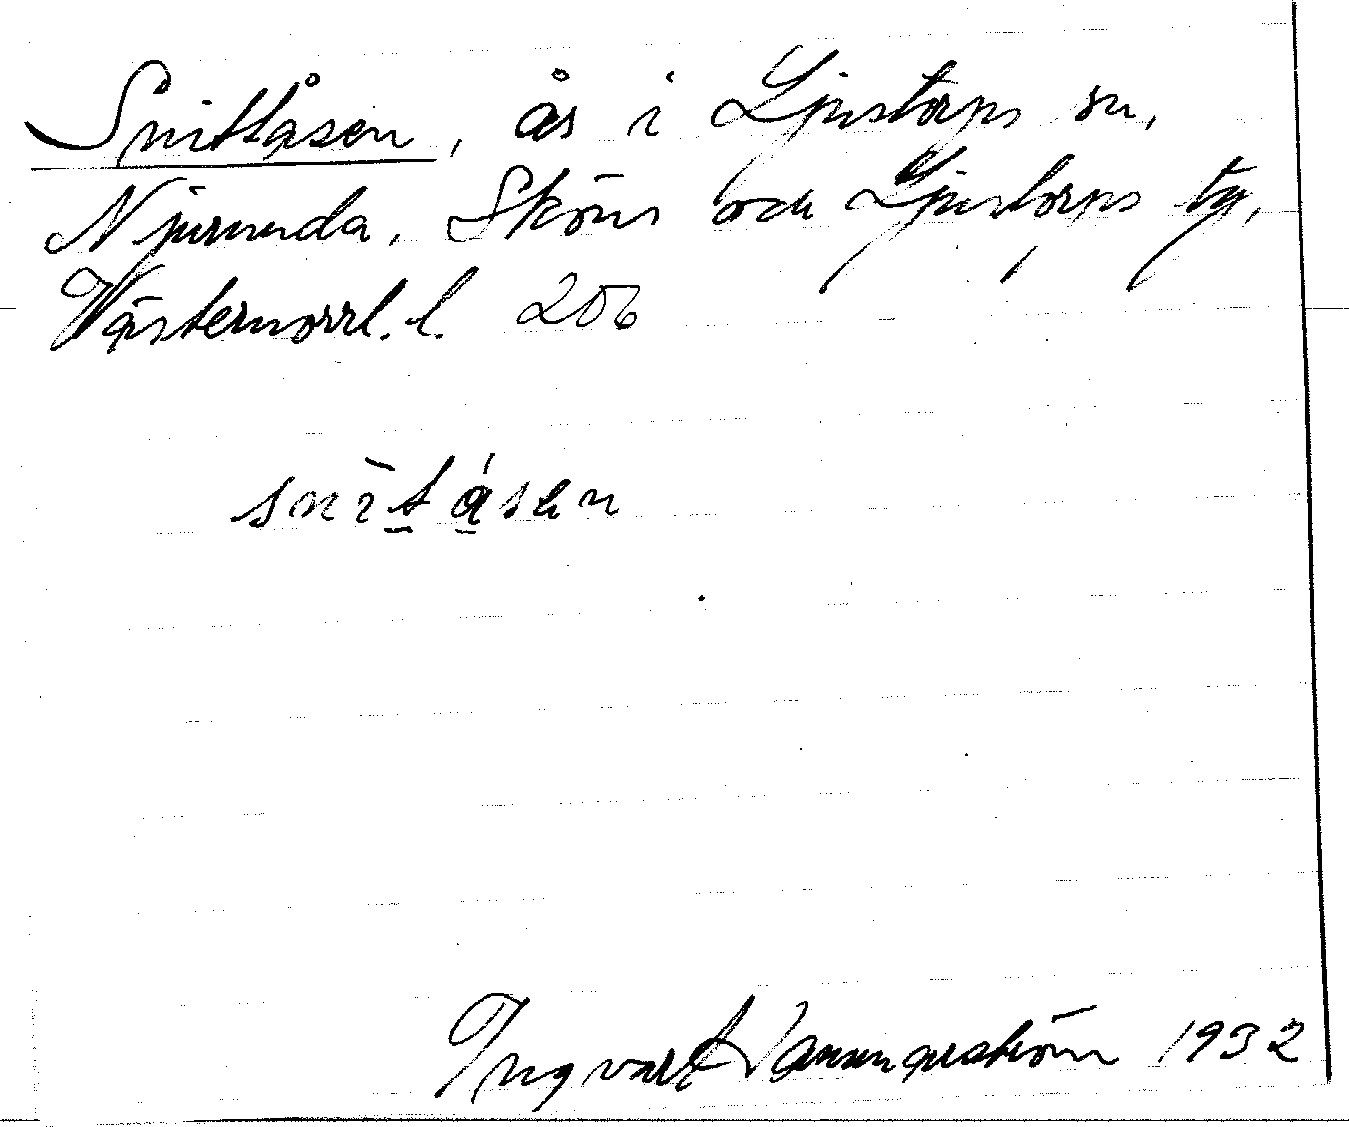 Snittåsen, ås i Ljustorps sn,
Njurunda, Sköns och Ljustorps tg,
Västernorrl. l. 206
snìtásen
Ingvar 1932